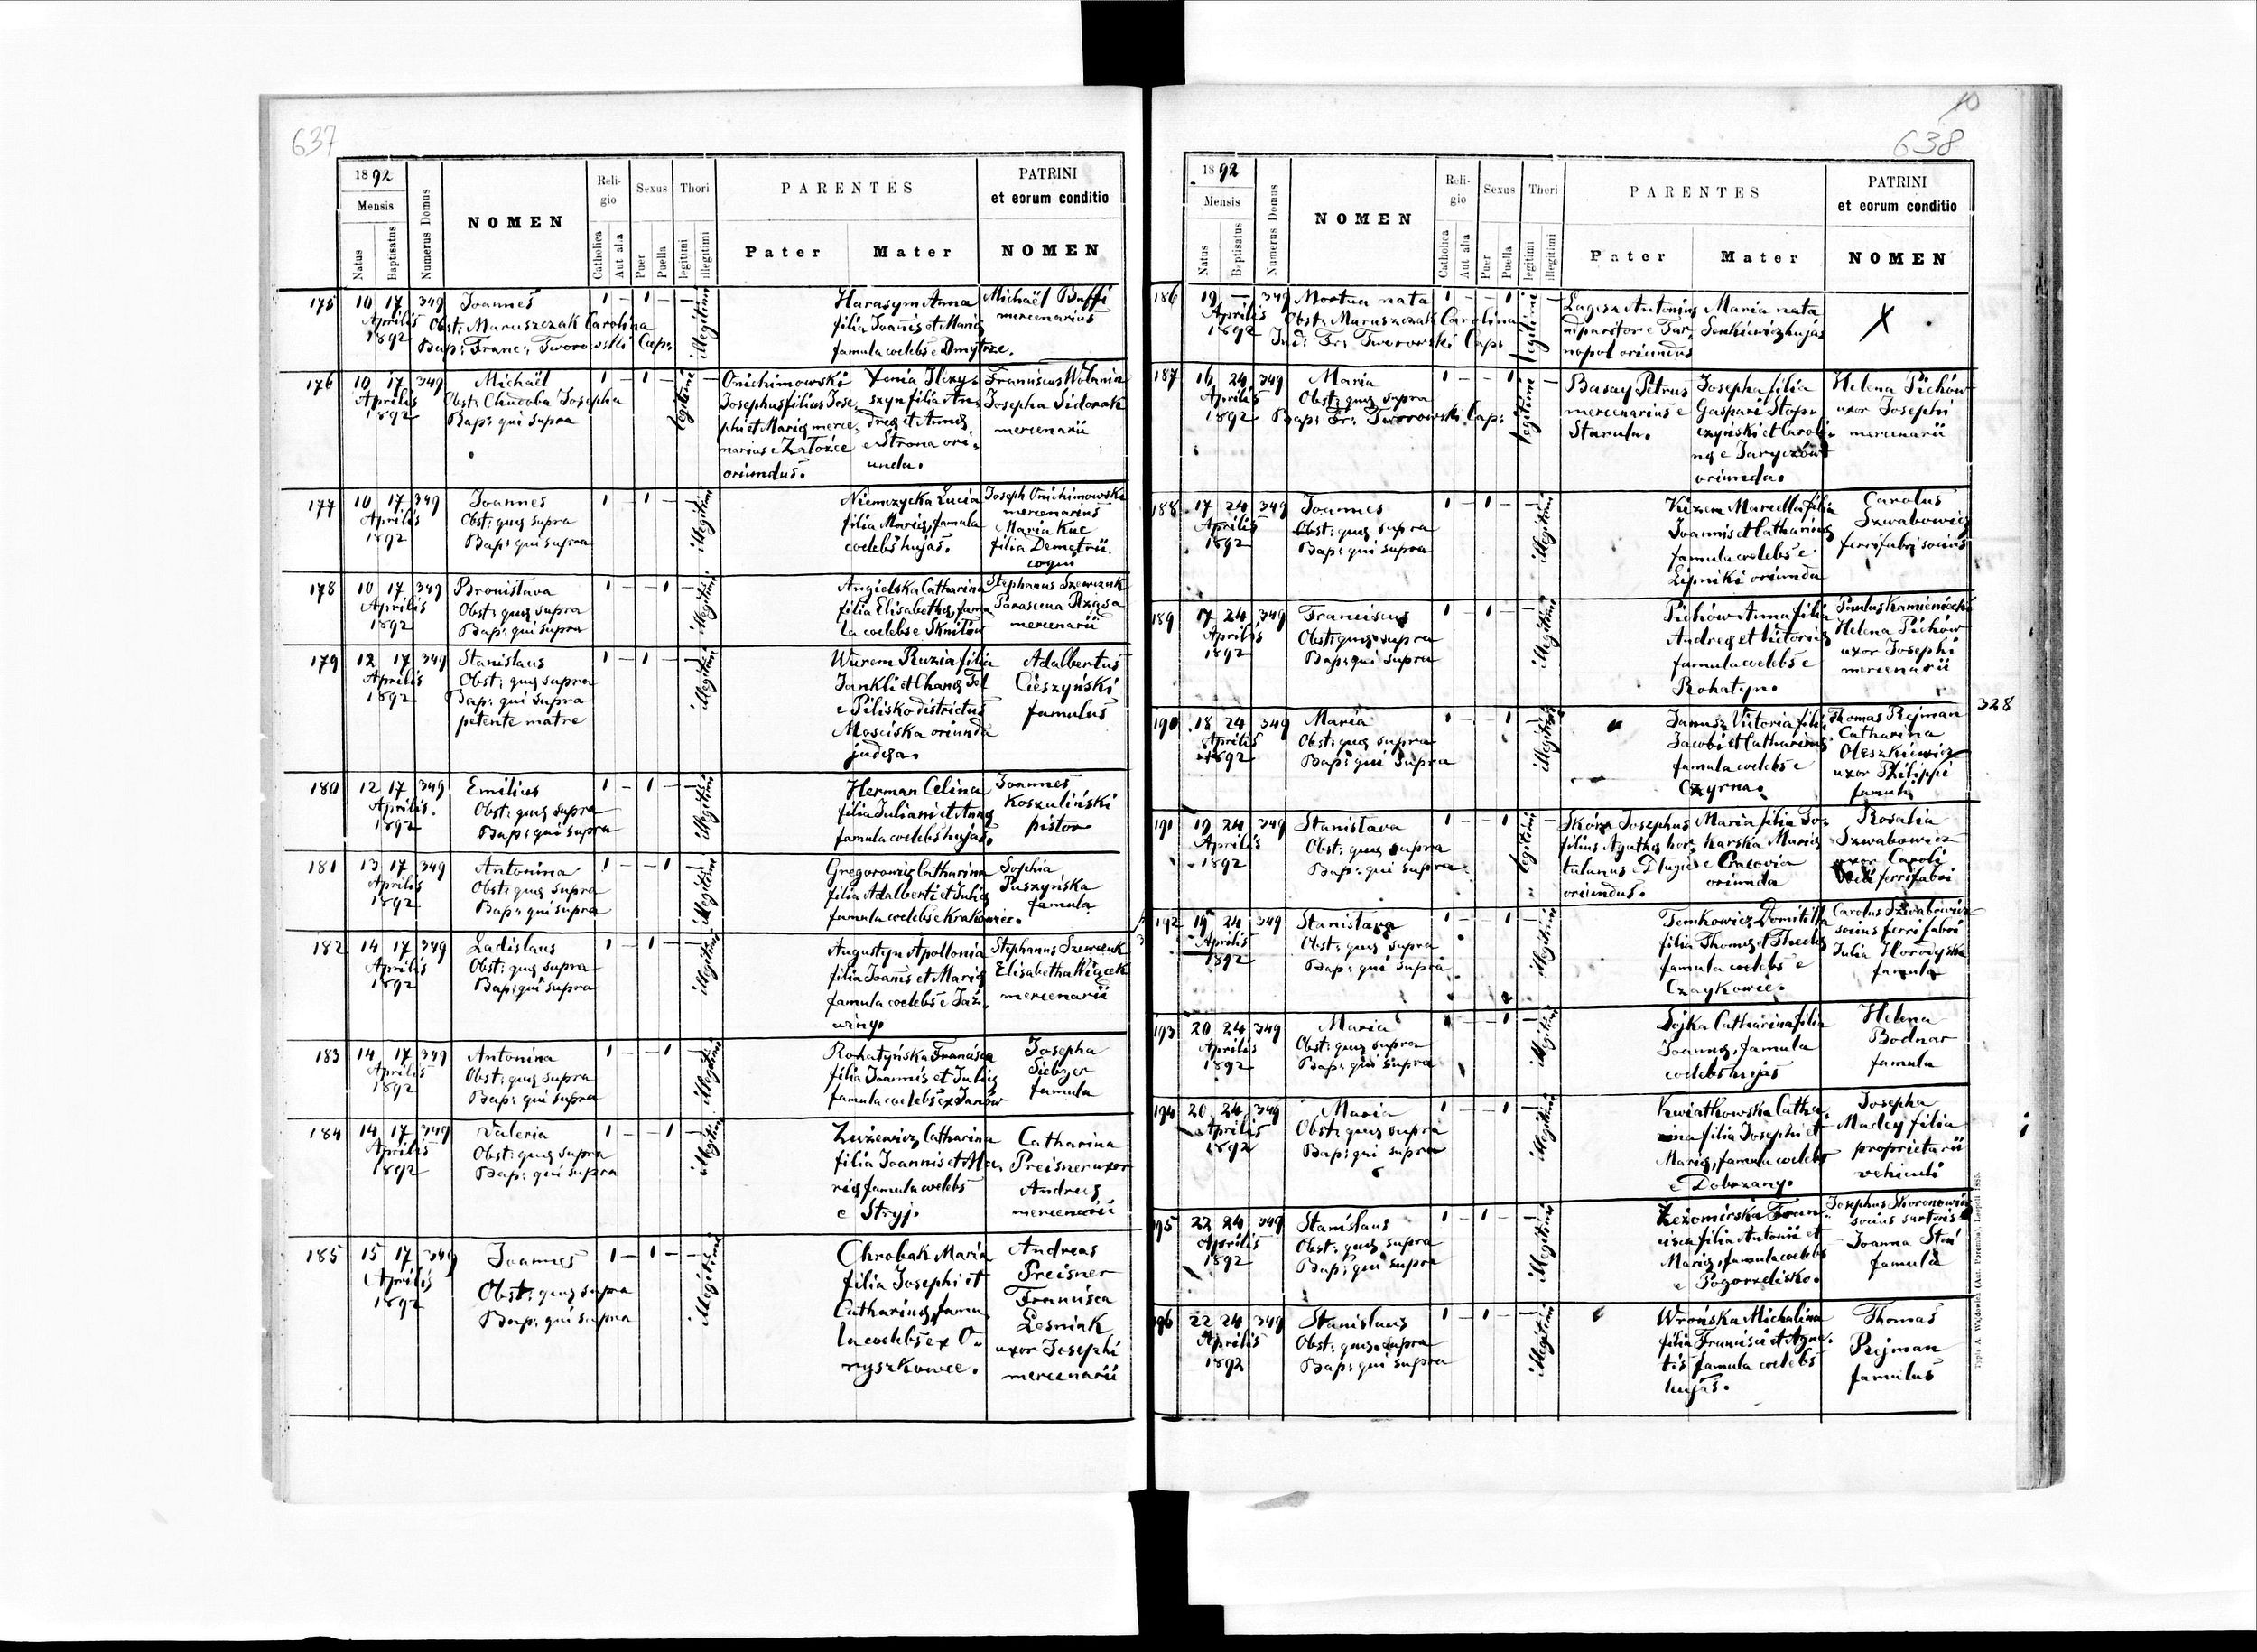 637
1892
Mensis
Natus
Baptisatus
Numerus Domus
NOMEN
Religio
Catholica
Aut alia
Sexus
Puer
Puella
Thori
legitimi
illegitimi
PARENTES
Pater
Mater
PATRINI
et eorum conditio
NOMEN
175 10 17 349 Joannes 1 – 1 – – illegitimi
Aprilis Obst: Maruszczak Carolina
1892 Bap: Franc: Tworowski Cap:
Harasym Anna
filia Joannis et Mariæ
famula coelebs e Dmytrze.
Michaël Buffi
mercenarius
176 10 17 349 Michaël 1 – 1 – legitimi –
Aprilis Obst: Chudoba Josepha
1892 Bap: qui supra
Onichimowski
Josephus filius Jose,
phi et Mariæ merce,
narius e Załoźce
oriundus.
Xenia
szyn filia An,
dreæ et Annæ
e Strona ori,
unda.
Franciscus Wolanin
Josepha Sidorak
mercenarii
177 10 17 349 Joannes 1 – 1 – – illegitimi
Aprilis Obst: quæ supra
1892 Bap: qui supra
Niemczycka Lucia
filia Mariæ, famula
coelebs hujas.
Joseph Onichimowski
mercenarius
Maria Kuc
filia Demetrii.
coqui
178 10 17 349 Bronislava 1 – – 1 – illegitimi
Aprilis Obst: quæ supra
1892 Bap: qui supra
Angielska Catharina
filia Elisabethæ, famu
la coelebs e Skniłów
Stephanus Szewczuk
Parascena Rząsa
mercenarii
179 12 17 349 Stanislaus 1 – 1 – – illegitimi
Aprilis Obst: quæ supra
1892 Bap: qui supra
petente matre
Wurem Ruzia filia
Jankli et Chanæ Fol
e Pilisko districtus
Mosciska oriunda
judæa.
Adalbertus
Cieszyński
famulus
180 12 17 349 Emilius 1 – 1 – – illegitimi
Aprilis. Obst: quæ supra
1892 Bap: qui supra
Herman Celina
filia Juliani et Annæ
famula coelebs hujas.
Joannes
Koszuliński
pistor
181 13 17 349 Antonina 1 – – 1 – illegitimi
Aprilis Obst: quæ supra
1892 Bap: qui supra
Gregorowicz Catharina
filia Adalberti et Juliæ
famula coelebs e Krakowiec.
Sophia
Puszyńska
famula
182 14 17 349 Ladislaus 1 – 1 – – illegitimi
Aprilis Obst: quæ supra
1892 Bap: qui supra
Augustyn Apollonia
filia Joannis et Mariæ
famula coelebs e Jaź-
winy.
Stephanus Szewczuk
Elisabetha Wiącek
mercenarii
183 14 17 349 Antonina 1 – – 1 – illegitimi
Aprilis Obst: quæ supra
1892 Bap: qui supra
Rohatyńska Francisca
filia Joannis et Juliæ
famula coelebs ex Janów
Josepha
famula
184 14 17 349 Valeria 1 – – 1 – illegitimi
Aprilis Obst: quæ supra
1892 Bap: qui supra
Zuzewicz Catharina
filia Joannis et Ma,
riæ famula coelebs
e Stryj.
Catharina
Preisner uxor
Andreæ
mercenarii
185 15 17 349 Joannes 1 – 1 – – illegitimi
Aprilis Obst: quæ supra
1892 Bap: qui supra
Chrobak Maria
filia Josephi et
Catharinæ, famu
la coelebs ex O-
ryszkowce.
Andreas
Preisner
Francisca
Lesniak
uxor Josephi
mercenarii
10
638
1892
Mensis
Natus
Baptisatus
Numerus Domus
NOMEN
Religio
Catholica
Aut alia
Sexus
Puer
Puella
Thori
legitimi
illegitimi
PARENTES
Pater
Mater
PATRINI
et eorum conditio
NOMEN
186 19 – 349 Mortua nata 1 – – 1 legitimi –
Aprilis Obst: Maruszczak Carolina
1892 Ind: Fr: Tworowski Cap:
Łagisz Antonius
oriundus
Maria nata
Senkiewicz hujas
X
187 16 24 349 Maria 1 – – 1 legitimi –
Aprilis Obst: quæ supra
1892 Bap: Fr: Tworowski Cap:
Basay Petrus
mercenarius e
Starula.
Josepha filia
Gaspari Stop-
czyński et Caroli-
næ e Jaryczów
oriunda.
Helena Pichów
uxor Josephi
mercenarii
188 17 24 349 Joannes 1 – 1 – – illegitimi
Aprilis Obst: quæ supra
1892 Bap: qui supra
Kizem Marcella filia
Joannis et Catharinæ
famula coelebs e
Lipniki oriunda
Carolus
Szwabowicz
ferrifabri socius
189 17 24 349 Franciscus 1 – 1 – – illegitimi
Aprilis Obst: quæ supra
1892 Bap: qui supra
Pichów Anna filia
Andreæ et Victoriæ
famula coelebs e
Rohatyn.
Paulus Kamieniecki
Helena Pichów
uxor Josephi
mercenarii
328
190 18 24 349 Maria 1 – – 1 – illegitimi
Aprilis Obst: quæ supra
1892 Bap: qui supra
Janusz Victoria filia
Jacobi et Catharinæ
famula coelebs e
Czyrna.
Thomas Rejman
Catharina
Oleszkiewicz
uxor Philippi
famuli
191 19 24 349 Stanislava 1 – – 1 legitimi –
Aprilis Obst: quæ supra
1892 Bap: qui supra
Skóra Josephus
filius Agathæ hor,
tulanus e Długie
oriundus.
Maria filia To-
karska Mariæ
e Cracovia
oriunda
Rosalia
Szwabowicz
uxor Caroli
socii ferrifabri
192 19 24 349 Stanislava 1 – – 1 – illegitimi
Aprilis Obst: quæ supra
1892 Bap: qui supra
Temkowicz Domitilla
filia Thomæ et Theclæ
famula coelebs e
Czaykowice.
Carolus Szwabowicz
socius ferri fabri
Julia Horodyska
famula
193 20 24 349 Maria 1 – – 1 – illegitimi
Aprilis Obst: quæ supra
1892 Bap: qui supra
Sojka Catharina filia
Joannæ, famula
coelebs hujas
Helena
Bodnar
famula
194 20 24 349 Maria 1 – – 1 – illegitimi
Aprilis Obst: quæ supra
1892 Bap: qui supra
Kwiatkowska Catha,
rina filia Josephi et
Mariæ, famula coelebs
e Dobrzany.
Josepha
Madey filia
proprietarii
vehiculi
195 22 24 349 Stanislaus 1 – 1 – – illegitimi
Aprilis Obst: quæ supra
1892 Bap: qui supra
Zezomirska Fran-
cisca filia Antonii et
Mariæ, famula coelebs
e Pogorzelisko.
Josephus Skoronowicz
socius sartoris
Joanna
famula
196 22 24 349 Stanislaus 1 – 1 – – illegitimi
Aprilis Obst: quæ supra
1892 Bap: qui supra
Wrońska Michalina
filia Francisci et Agne-
tis famula coelebs
hujas.
Thomas
Rejman
famulus